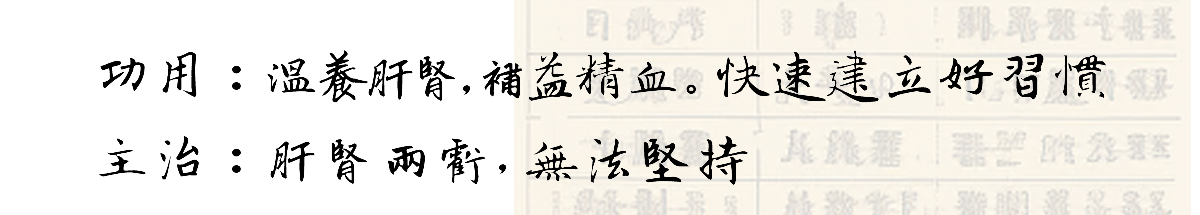 功用：溫養肝腎，補益精血。快速建立好習慣
主治：肝腎兩虧，無法堅持